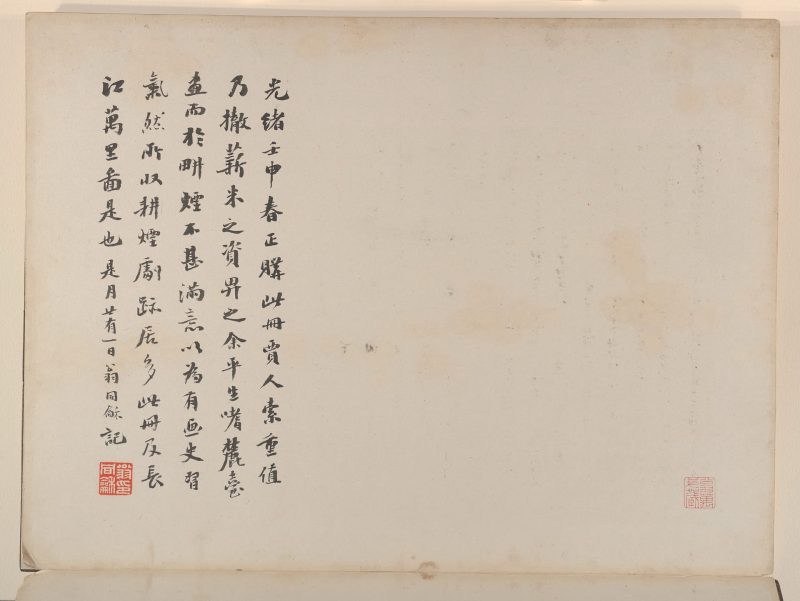 光緒壬申春正購此冊賈人索重值
乃撤薪米之資畀之余平生嗜麓臺
畫而於畊煙不甚滿意以為有畫史習
氣然所收耕煙劇跡居多此冊及長
江萬里圖是也是月廿有一日翁同龢記
翁同龢印